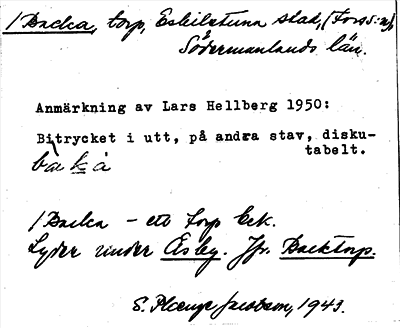 / Backa, torp, Eskilstuna stad, (Fors s:n),
Södermanlands län.
Anmärkning av Lars Hellberg 1950:
Bitrycket i utt, på andra stav, disku-
tabelt.
bakà
/ Backa - ett torp Eck.
Lyder under Åsby. Jfr. Backtorp.
S. Plenge Jacobson, 1943.